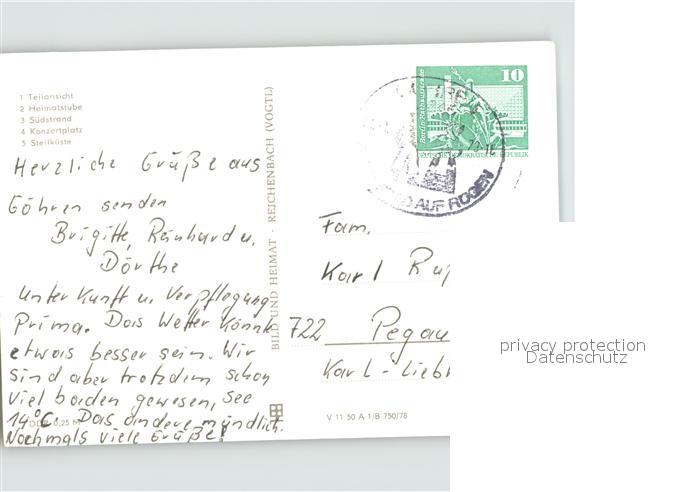 1 Teilansicht
2 Heimatstube
3 Südstrand
4 Konzertplatz
5 Steilküste
Herzliche Grüße aus
Göhren senden
Brigitte, Reinhard u.
Dörthe
Unterkunft u. Verpflegung
Prima. Das Wetter könnte
etwas besser sein. Wir
sind aber trotzdem schon
viel baden gewesen, see
14°C. Das andere mündlich.
Nochmals viele Grüße!
DDR 0,25 M
BILD UND HEIMAT · REICHENBACH (VOGTL)
V 11 50 A 1/B 750/78
10
Berlin, Rathausstraße
DEUTSCHE DEMOKRATISCHE REPUBLIK
AUF RÜGEN
Fam.
Karl Rup
722 Pegau
Karl-Liebk
privacy protection
Datenschutz